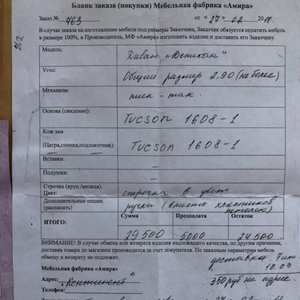 Бланк заказа (покупки) Мебельная фабрика «Амира»
Заказ № 763 от «27» 02
В случае заказа на изготовление мебели под размеры Заказчика, Заказчик обязуется оплатить мебель
в размере 100%, а Производитель, МФ «Амира» изготовить изделия и доставить его Заказчику.
Модель: Диван „Ватикан"
Угол: Общий размер 2.90 (не более)
Механизм: тик - так.
Основа (сведения): Tucson 1608-1
Кож.зам
(Царга,спинка,подлокотник) Tucson 1608-1
Вставки: —
Подушки: —
Строчка (круг./мелкая)
Цвет: строчка в цвет
Дополнительные опции:
(расписать) ручки (вместо
ИТОГО: Сумма Предоплата Остаток
29 500 5000 24 500
ВНИМАНИЕ: В случае обмена или возврата изделия надлежащего качества, по другим причинам,
доставка товара до магазина производится за счет покупателя. По заказным параметрам мебель
обмену и возврату не подлежит.
доставка
10.03
Мебельная фабрика «Амира»
350 руб на адресе
Адрес: „Континент"
Телефон: